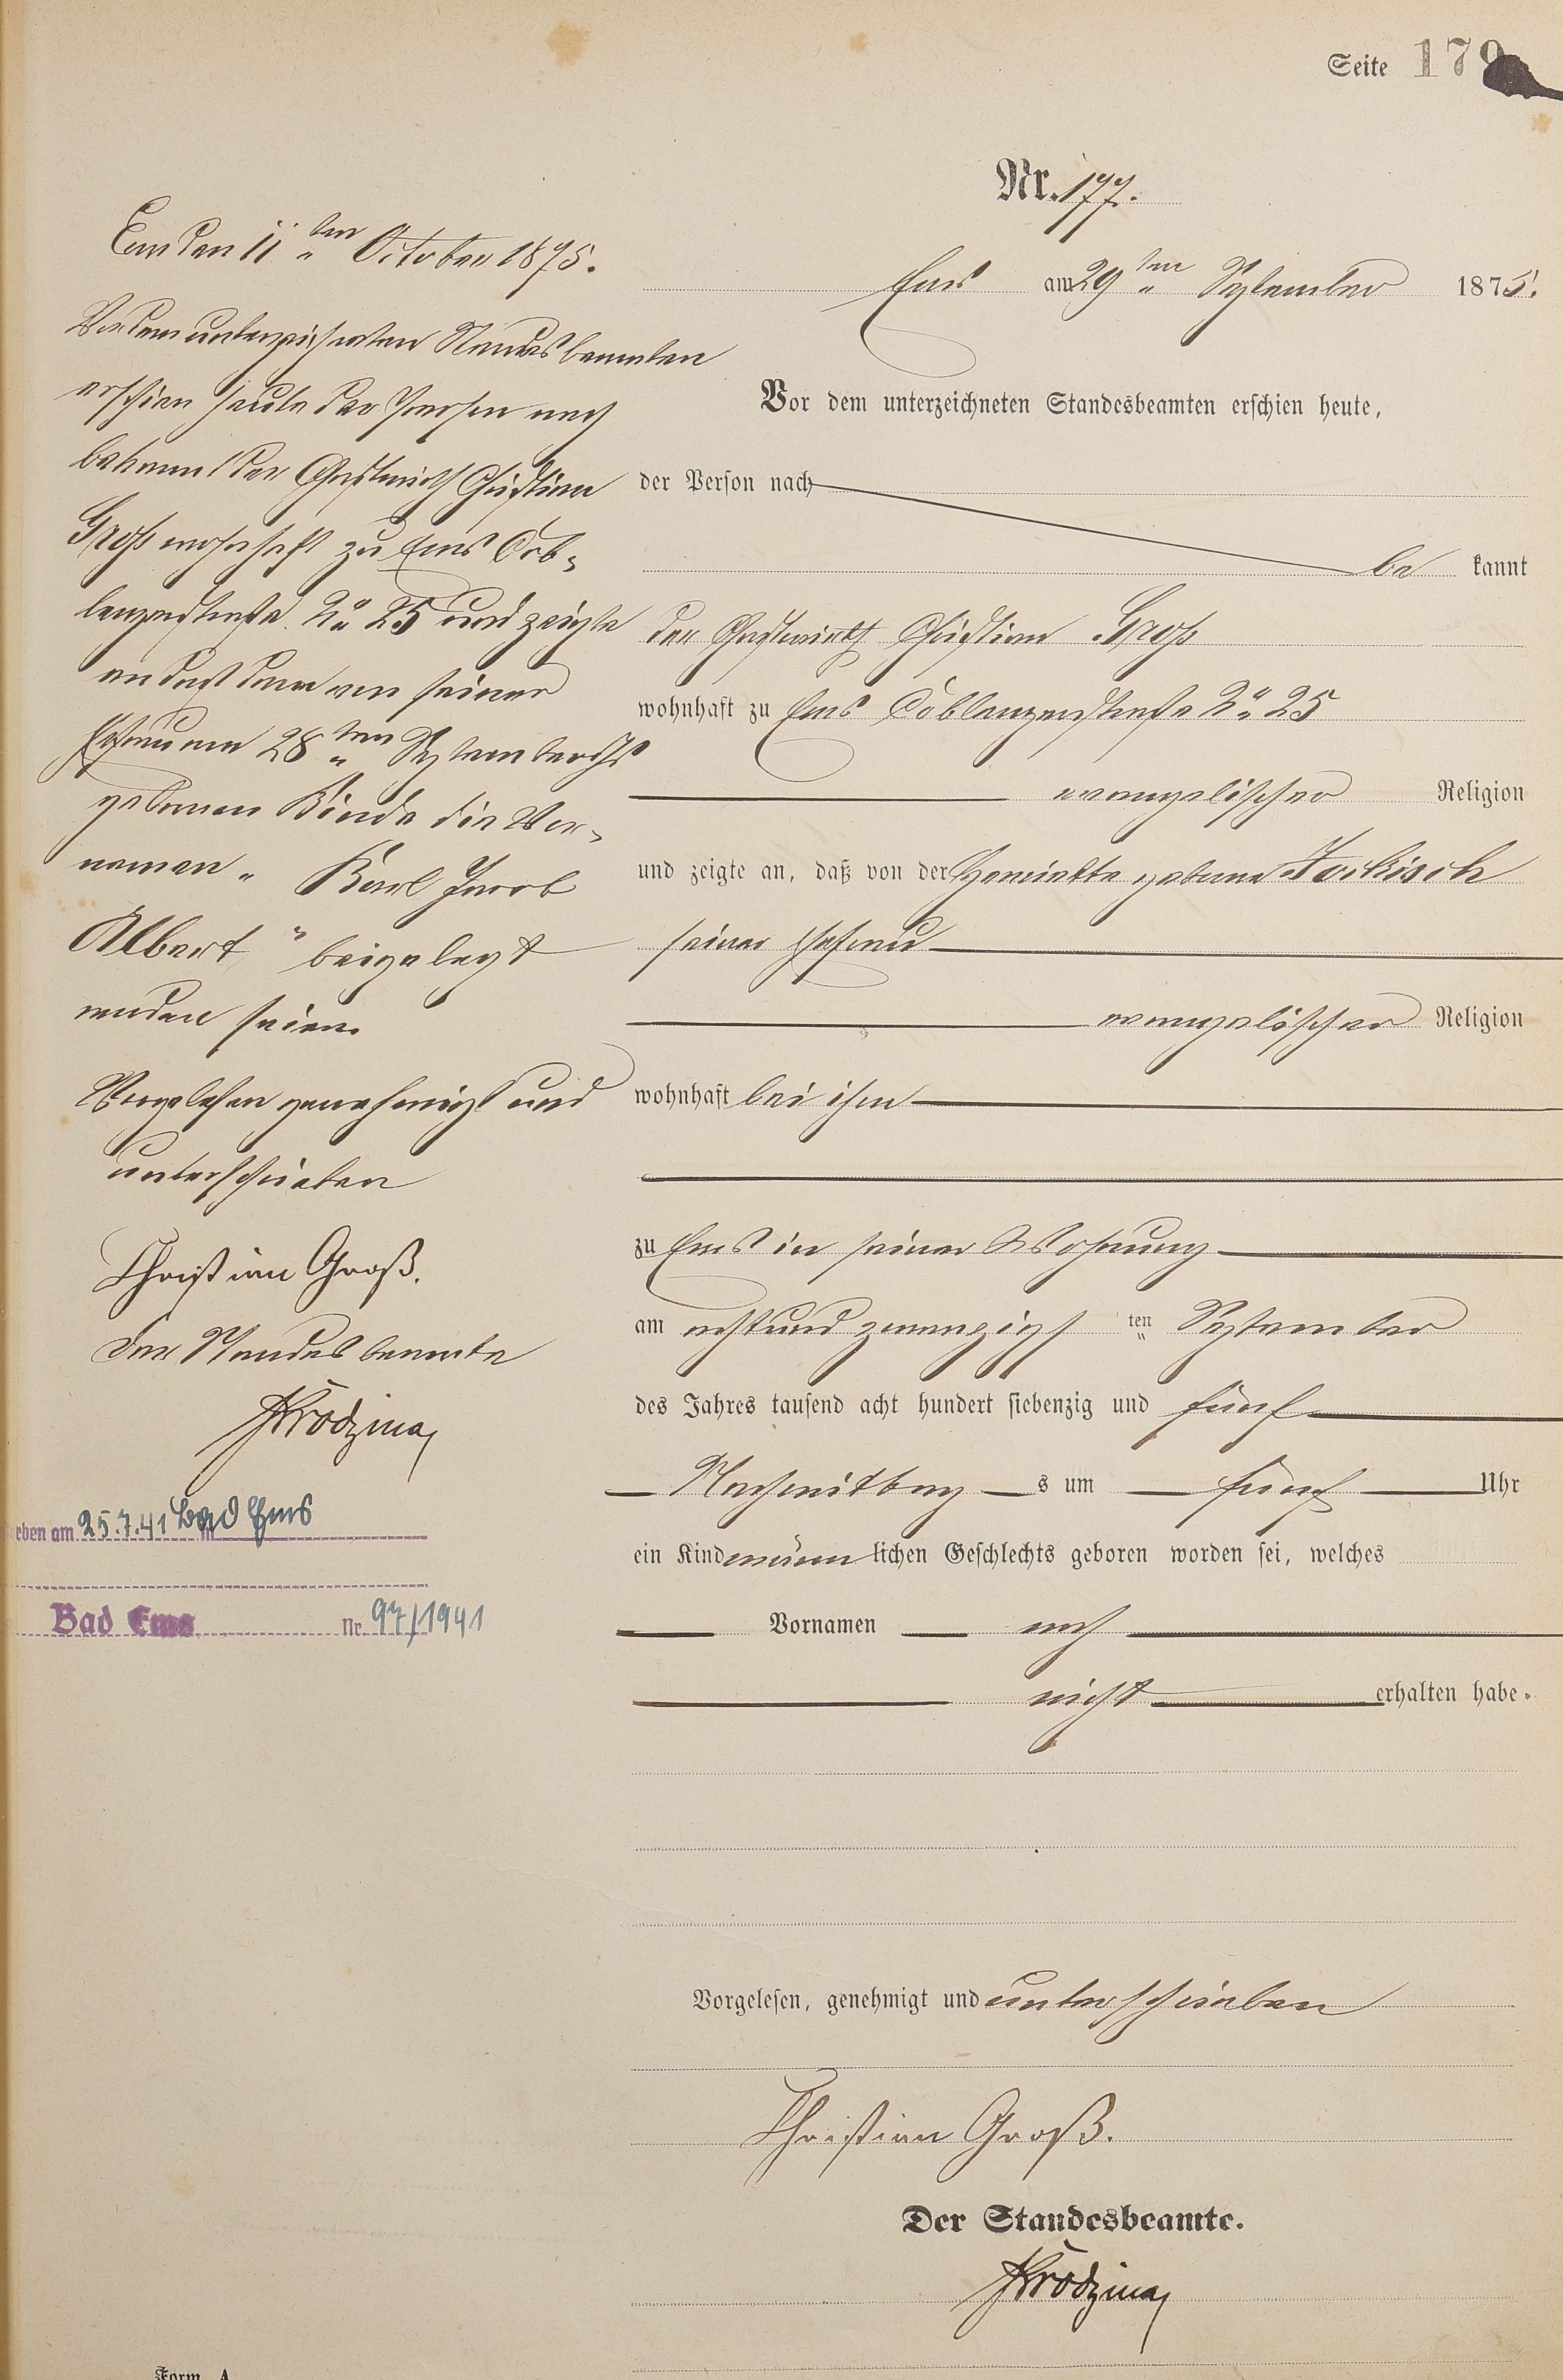 Seite 179
Nr. 177.
Ems am 29ten September 1875.
Vor dem unterzeichneten Standesbeamten erschien heute,
der Person nach
bekannt
der Gastwirth Christian Groß
wohnhaft zu Ems Coblenzerstraße No 25
evangelischer Religion
und zeigte an, daß von der Henriette geborene Jockisch
seiner Ehefrau
evangelischer Religion
wohnhaft bei ihm
zu Ems in seiner Wohnung
am achtundzwanzigsten September
des Jahres tausend acht hundert siebenzig und fünf
Nachmittags um fünf Uhr
ein Kind männlichen Geschlechts geboren worden sei, welches
Vornamen noch
nicht erhalten habe.
Vorgelesen, genehmigt und unterschrieben
Christian Groß.
Der Standesbeamte.
Form. A.
Ems den 11ten October 1875.
Vor dem unterzeichneten Standesbeamten
erschien heute der Person nach
bekannt der Gastwirth Christian
Groß wohnhaft zu Ems Cob-
lenzerstraße No 25 und zeigte
an daß dem von seiner
Ehefrau am 28ten September
geborenen Kinde die Vor-
namen " Karl Jacob
Albert " beigelegt
worden seien.
Vorgelesen genehmigt und
unterschrieben
Christian Groß.
Der Standesbeamte
rben am 25.7.41 in Bad Ems
Bad Ems Nr. 97/1941